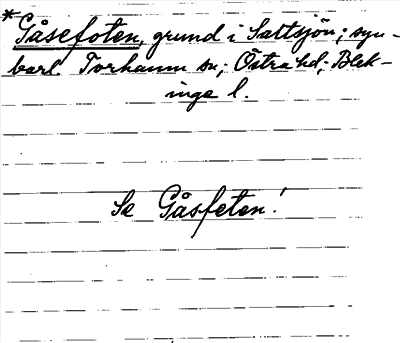 *Gåsefoten, grund i Saltsjön; syn-
barl. Torhamn sn; Östra hd; Blek-
inge l.
Se Gåsfeten!